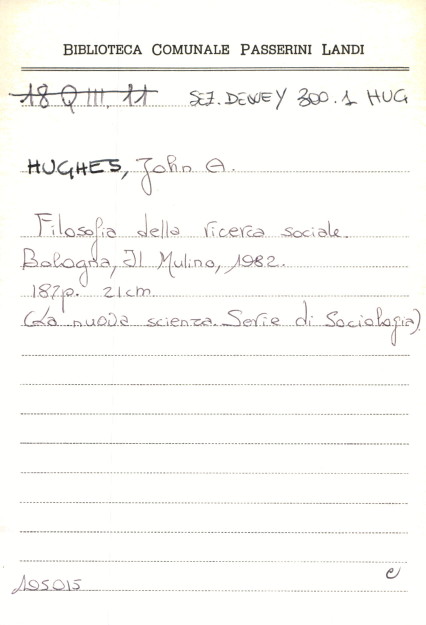 BIBLIOTECA COMUNALE PASSERINI LANDI
18 Q III. 11 SEZ. DEWEY 300.1 HUG
HUGHES, John A.
Filosofia della ricerca sociale.
Bologna, Il Mulino, 1982.
187p. 21cm.
(La nuova scienza. Serie di Sociologia)
195015 e